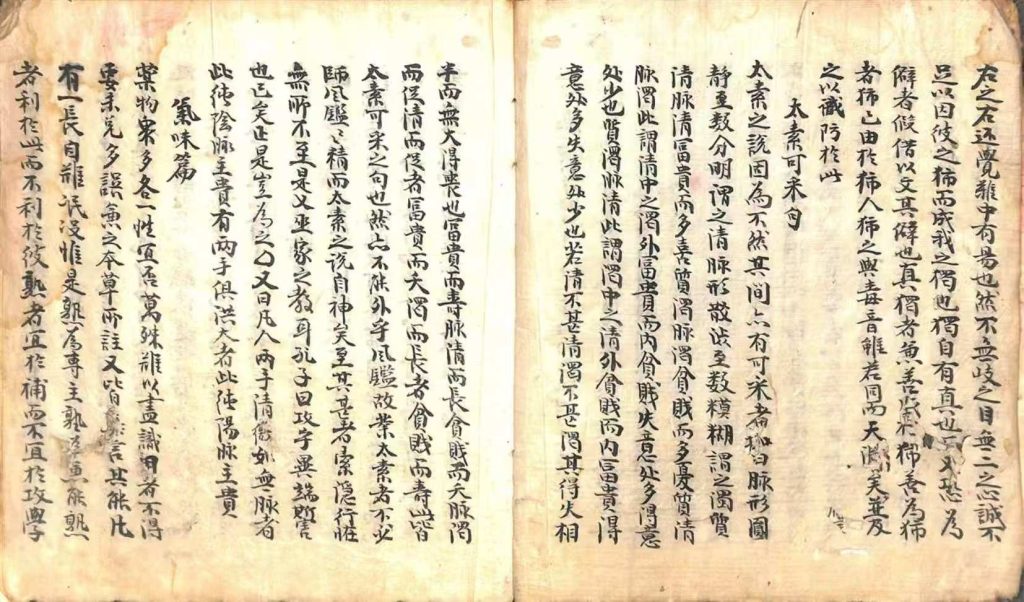 右之右还覺難中有易也然不無歧之目無二之心誠不
足以因彼之獨而成我之獨也獨自有真也又恐為
僻者假借以文其僻也真獨者兼善不獨善為獨
者獨己由於獨人獨之與毒音雖若同而天淵矣並及
之以識防於此
太素可采句
太素之說因為不然其间亦有可采者曰脉形圓
静至数分明謂之清脉形散渋至数糢糊謂之濁質
清脉清富貴而多喜質濁脉濁貧賎而多憂質清
脉濁此謂清中之濁外富貴而内貧賎失意处多得意
处少也質濁脉清此謂濁中之清外貧賎而内富貴得
意处多失意处少也若清不甚清濁不甚濁其得失相
半而無大得丧也富貴而壽脉清而長貧賎而夭脉濁
而促清而促者富貴而夭濁而長者貧賎而壽此皆
太素可采之句也然亦不能外乎風鑑故業太素者不必
師風鑑々精而太素之说自神矣至其甚者索隐行怪
無所不至是又巫家之教耳孔子曰攻乎異端斯害
也已矣正是豈為之乎又曰凡人兩手清微如無脉者
此純陰脉主貴有两手俱洪大者此純陽脉主貴
氣味篇
藥物衆多各一性宜否萬殊難以盡識用者不得
要未免多誤兼之本草所註又皆言其能凡
有一長自難泯没惟是熟為專主熟為兼能熟
者利於此而不利於彼熟者宜於補而不宜於攻學